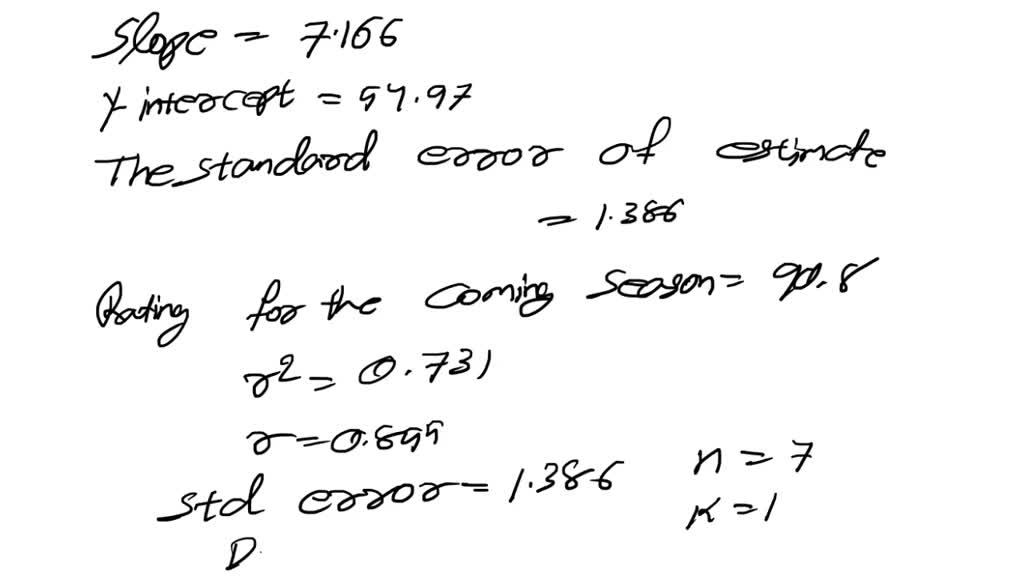 Slope = 7.166
Y intercept = 54.97
The standard error of estimate
= 1.386
Rating for the coming season = 90.8
r2 = 0.731
r = 0.855
std error = 1.386 n = 7
K = 1
D.